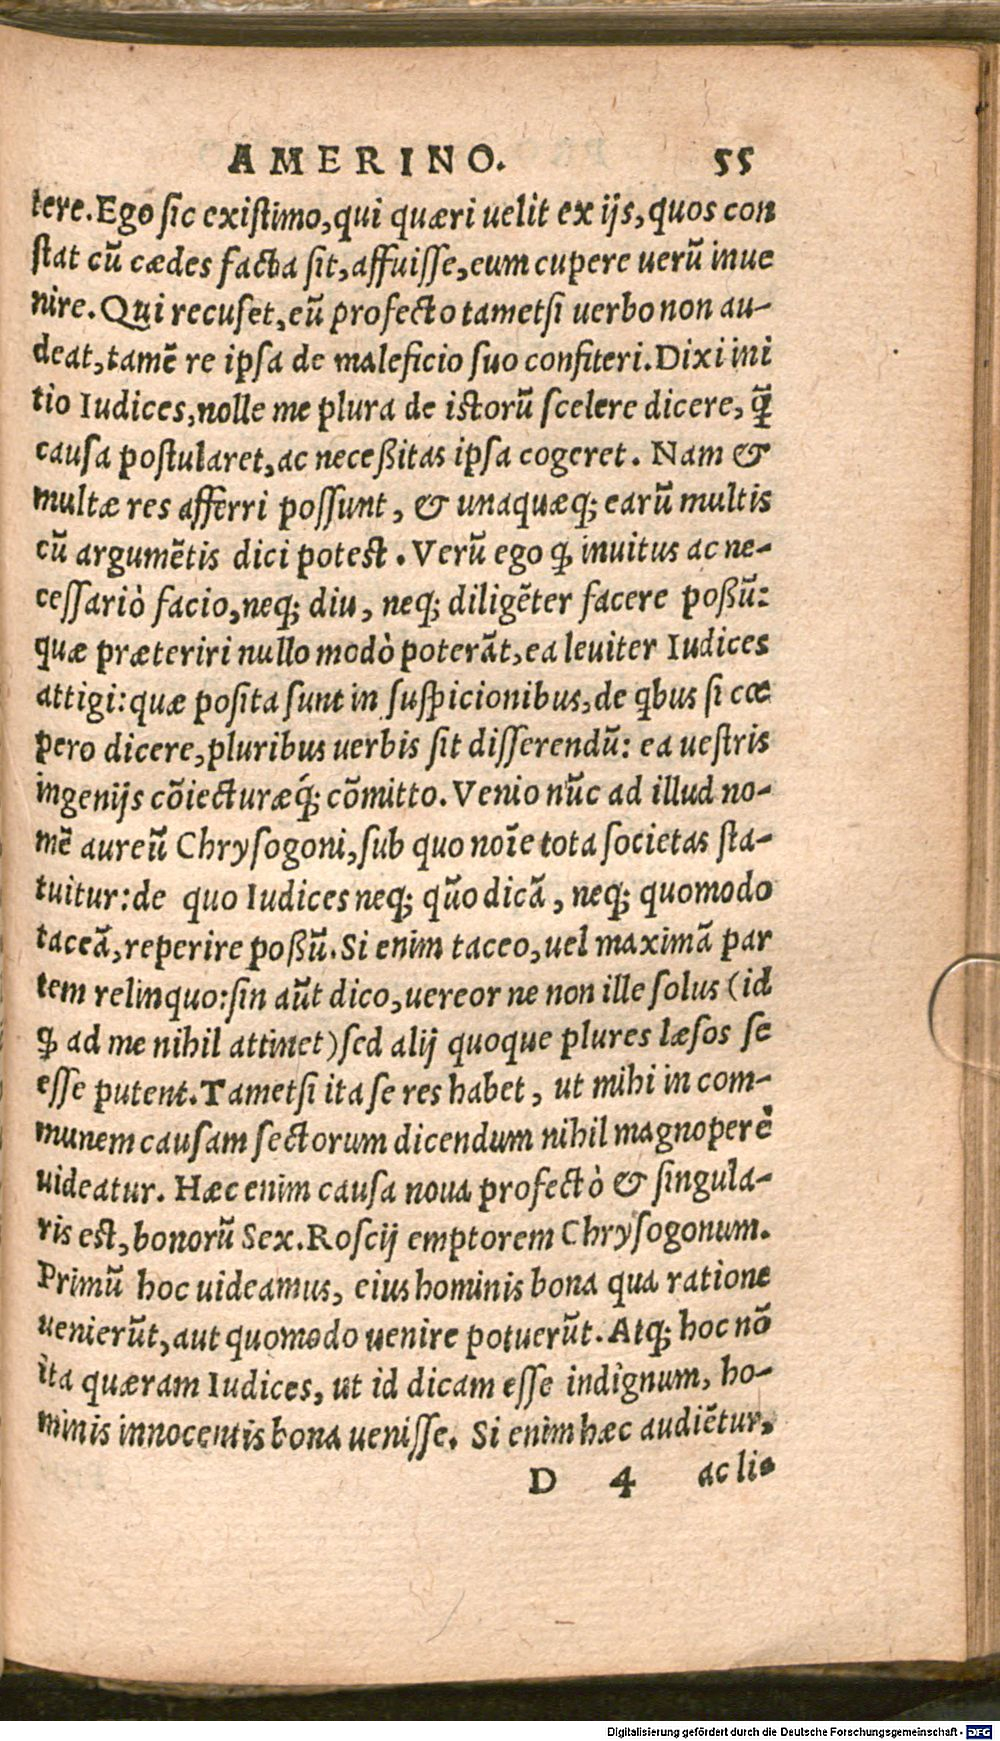 AMERINO. 55
tere. Ego sic existimo, qui quæri uelit ex ijs, quos con
stat cũ cædes facta sit, affuisse, eum cupere uerũ inue
nire. Qui recuset, eũ profecto tametsi uerbo non au-
deat, tamẽ re ipsa de maleficio suo confiteri. Dixi ini
tio Iudices, nolle me plura de istorũ scelere dicere, q̃
causa postularet, ac neceßitas ipsa cogeret. Nam &
multæ res afferri possunt, & unaquæq; earũ multis
cũ argumẽtis dici potest. Verũ ego ꝙ inuitus ac ne-
cessariò facio, neq; diu, neq; diligẽter facere poßũ:
quæ præteriri nullo modò poterãt, ea leuiter Iudices
attigi: quæ posita sunt in suspicionibus, de qbus si cœ
pero dicere, pluribus uerbis sit disserendũ: ea uestris
ingenijs cõiecturæq́; cõmitto. Venio nũc ad illud no-
mẽ aureũ Chrysogoni, sub quo noĩe tota societas sta-
tuitur: de quo Iudices neq; qũo dicã, neq; quomodo
taceã, reperire poßũ. Si enim taceo, uel maximã par
tem relinquo: sin aũt dico, uereor ne non ille solus (id
ꝙ ad me nihil attinet) sed alij quoque plures læsos se
esse putent. Tametsi ita se res habet, ut mihi in com-
munem causam sectorum dicendum nihil magnoperè
uideatur. Hæc enim causa noua profectò & singula-
ris est, bonorũ Sex. Roscij emptorem Chrysogonum.
Primũ hoc uideamus, eius hominis bona qua ratione
uenierũt, aut quomodo uenire potuerũt. Atq; hoc nõ
ita quæram Iudices, ut id dicam esse indignum, ho-
minis innocentis bona uenisse. Si enim hæc audiẽtur,
D 4 ac li-
Digitalisierung gefördert durch die Deutsche Forschungsgemeinschaft - DFG